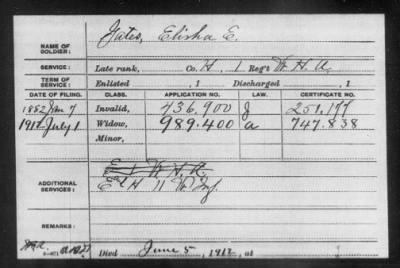 NAME OF SOLDIER: Yates, Elisha E.
SERVICE: Late rank, Co. H, 1 Reg't W. H. A.
TERM OF SERVICE: Enlisted , 1 Discharged , 1
DATE OF FILING. CLASS. APPLICATION NO. LAW. CERTIFICATE NO.
1882 Jan 7 Invalid, 436,900 J 251.177
1912 July 1 Widow, 989.400 a 747.838
Minor,
ADDITIONAL SERVICES: E 1 W. H. A.
E & H 11 W. Inf.
REMARKS:
Died June 5, 1912, at